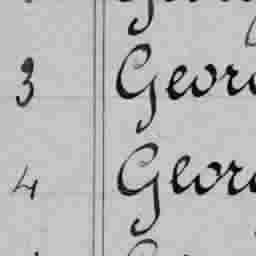 3 Geor
4 Geor